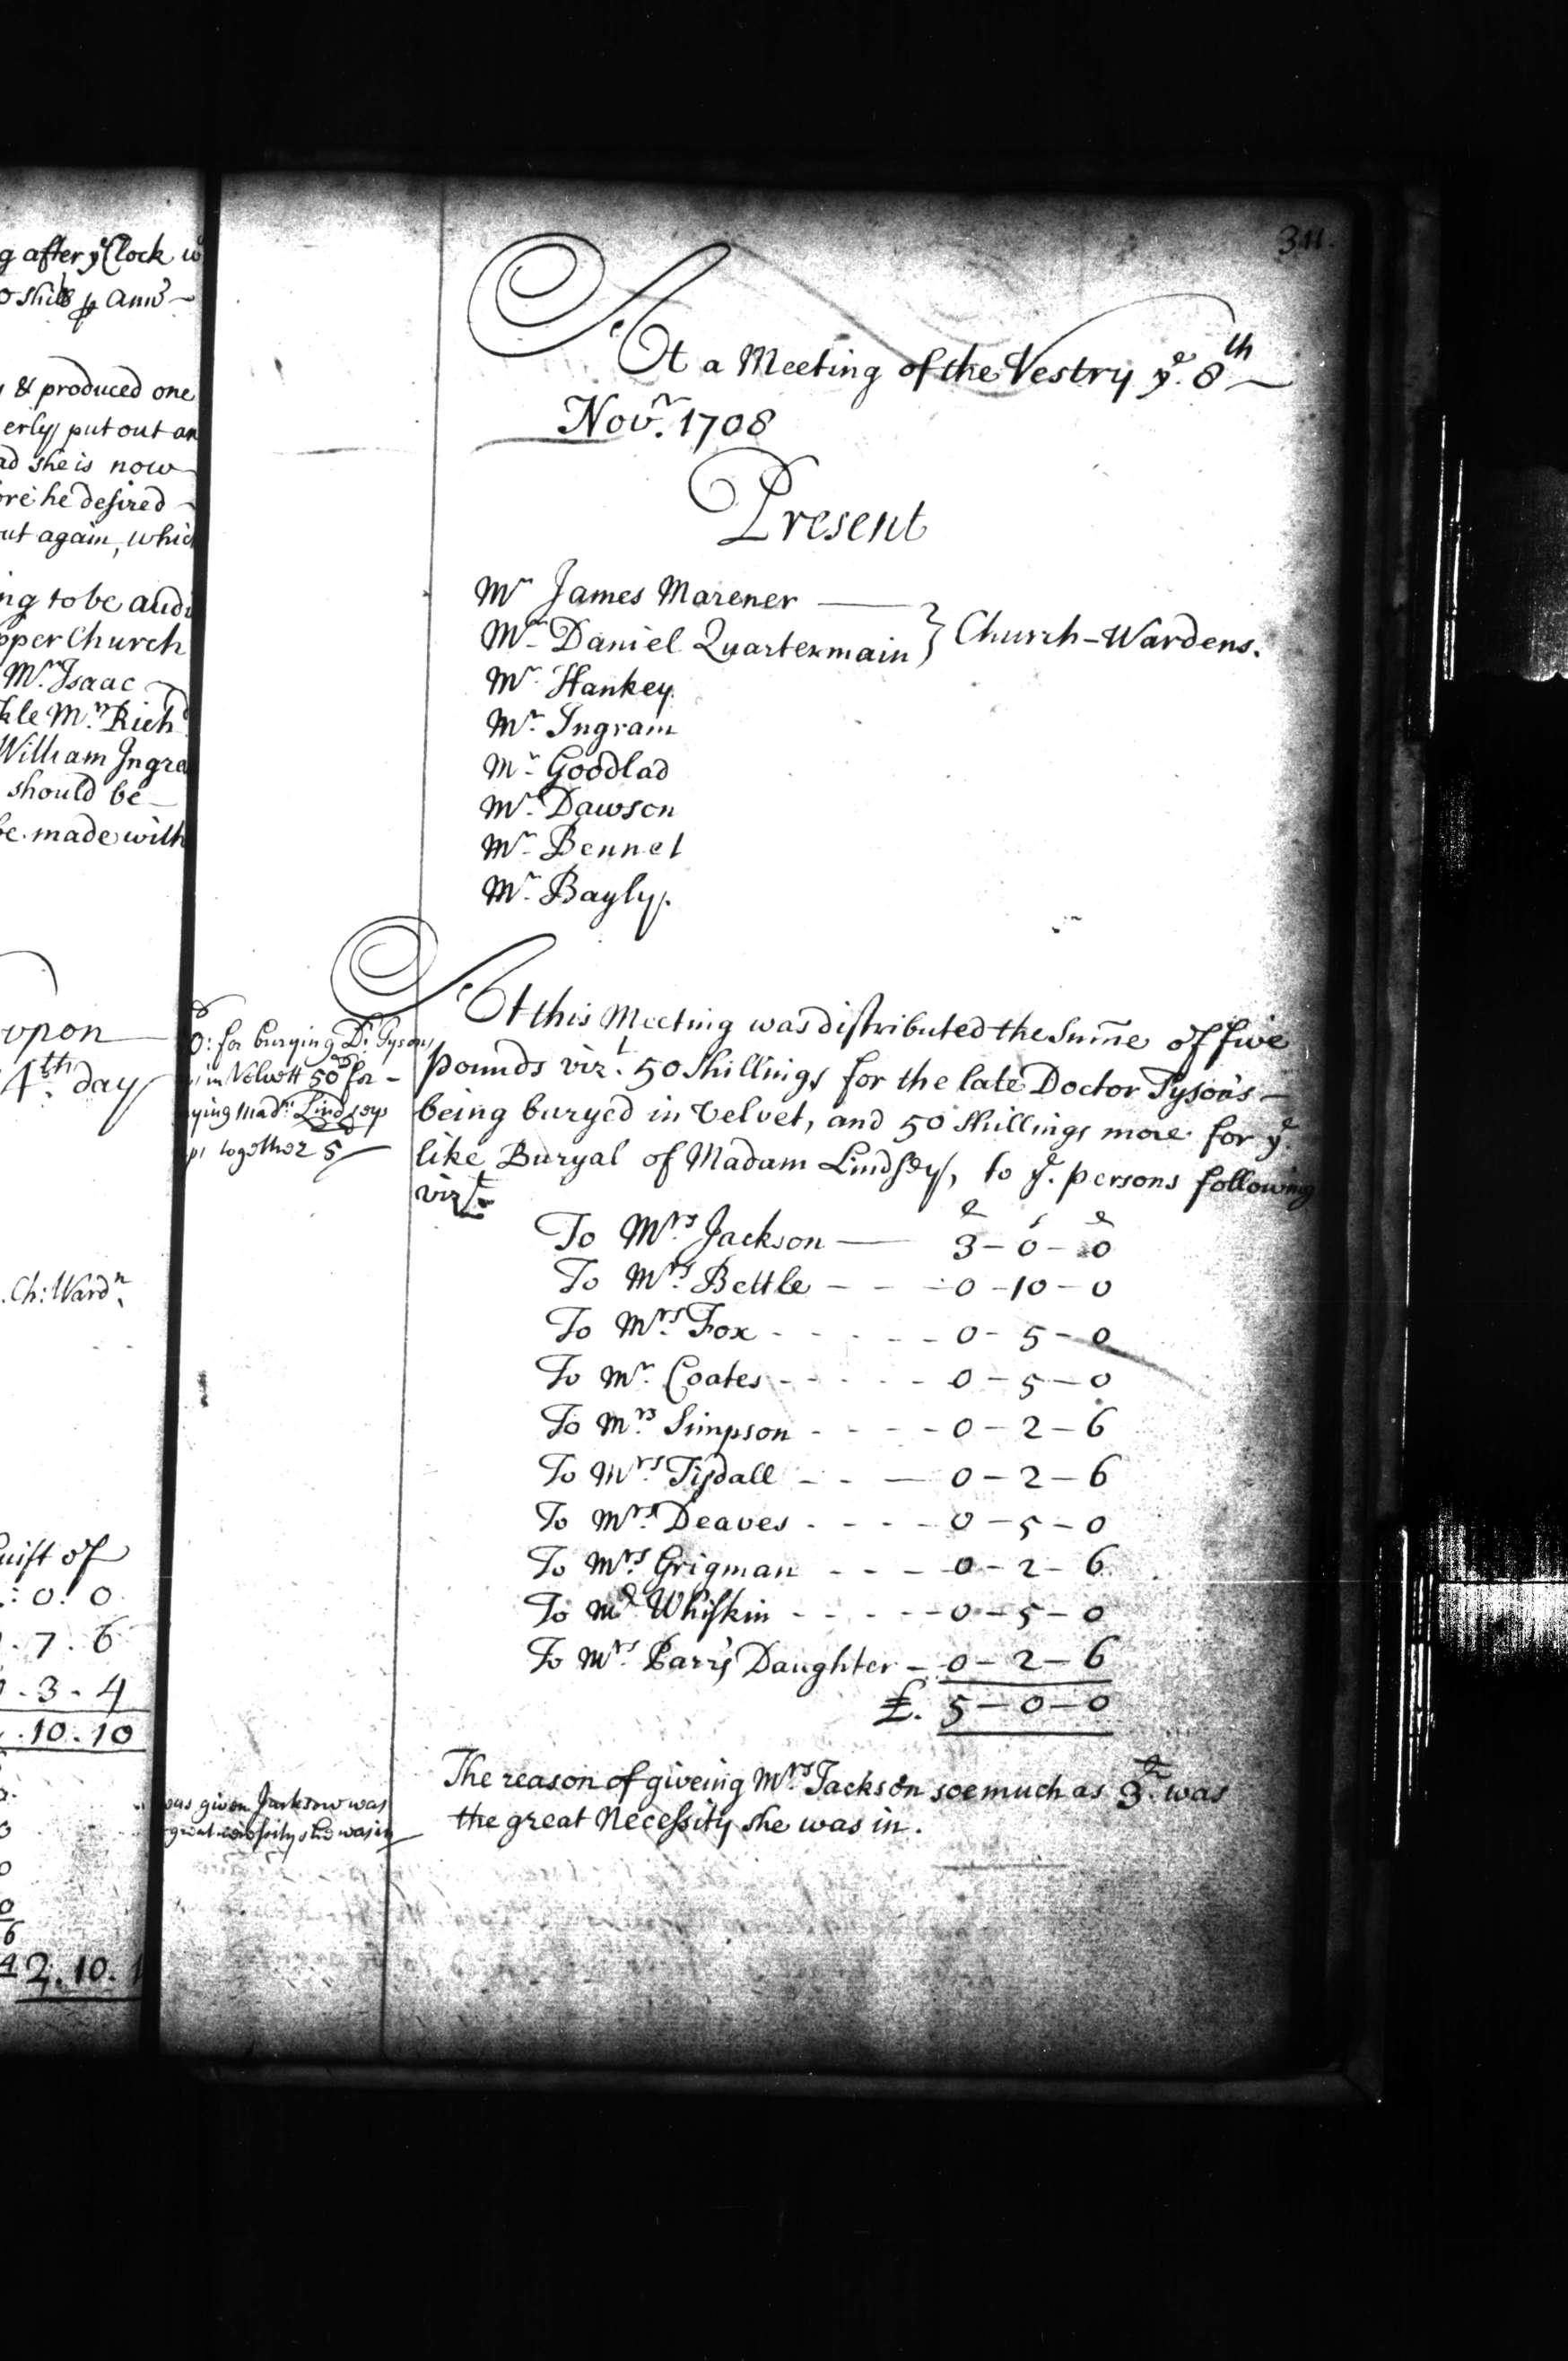 g after yᵉ Clock
o Shills ꝑ Annᵒ
& produced one
erly put out an
ad she is now
ore he desired
ut again, which
ng to be audi
pper Church
Mʳ. Isaac
kle Mʳ. Richᵈ
William Ingra
should be
be made with
upon
4ᵗʰ. day
Ch: Wardⁿ.
Guift of
: 0 : 0
. 7 . 6
. 3 . 4
. 10 . 10
2 . 10 .
311.
At a Meeting of the Vestry yᵉ. 8ᵗʰ
Novʳ. 1708
Present
Mʳ James Marener
Mʳ. Daniel Quartermain } Church-Wardens.
Mʳ. Hankey.
Mʳ. Ingram
Mʳ. Goodlad
Mʳ. Dawson
Mʳ. Bennet
Mʳ. Bayly.
: for burying Dʳ. Tyson
in Velvett 50ˢ for
ying Madᵐ. Lindsey
together 5
At this Meeting was distributed the Sum̄e of five
pounds vizᵗ. 50 Shillings for the late Doctor Tyson's
being buryed in Velvet, and 50 Shillings more for yᵉ.
like Buryal of Madam Lindsey, to yᵉ. persons following
vizᵗ.
To Mʳˢ. Jackson — 3 - 0 - 0
To Mʳˢ. Bettle - - - 0 - 10 - 0
To Mʳˢ. Fox - - - - - 0 - 5 - 0
To Mʳ. Coates - - - - - 0 - 5 - 0
To Mʳˢ. Simpson - - - - 0 - 2 - 6
To Mʳˢ. Tisdall - - — 0 - 2 - 6
To Mʳˢ. Deaves - - - - 0 - 5 - 0
To Mʳˢ. Grigman - - - 0 - 2 - 6
To Whiskin - - - - - 0 - 5 - 0
To Mʳˢ. Parry's Daughter - 0 - 2 - 6
£. 5 - 0 - 0
The reason of giveing Mʳˢ. Jackson soe much as 3ˡ. was
the great Necessity she was in.
was given Jackson was
great necessity she was in